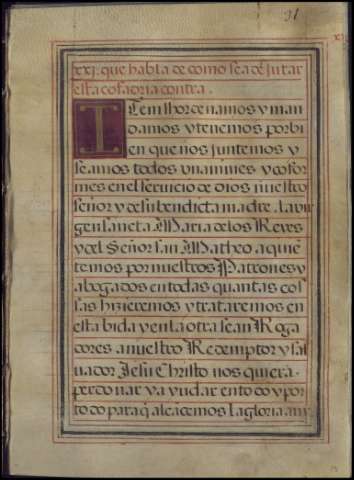 31
xxj. que habla de como se a de jutar
esta cofadria contra.
Item hordenamos y man
damos y tenemos por bi
en que nos juntemos y
seamos todos vnanimes y cōfor
mes en el servicio de dios nuestro
señor y de su bendicta madre. la vir
gen sancta Maria de los Reyes
y del Señor san Matheo a quiē
temos por nuestros Patrones y
abogados en todas quantas cos
sas hizieremos y trataremos en
esta bida y en la otra sean Roga
dores a nuestro Redemptor y sal
uador Jesu Christo nos quiera.
perdonar y ayudar en todo y por
todo para q̄ alcācemos la gloria am